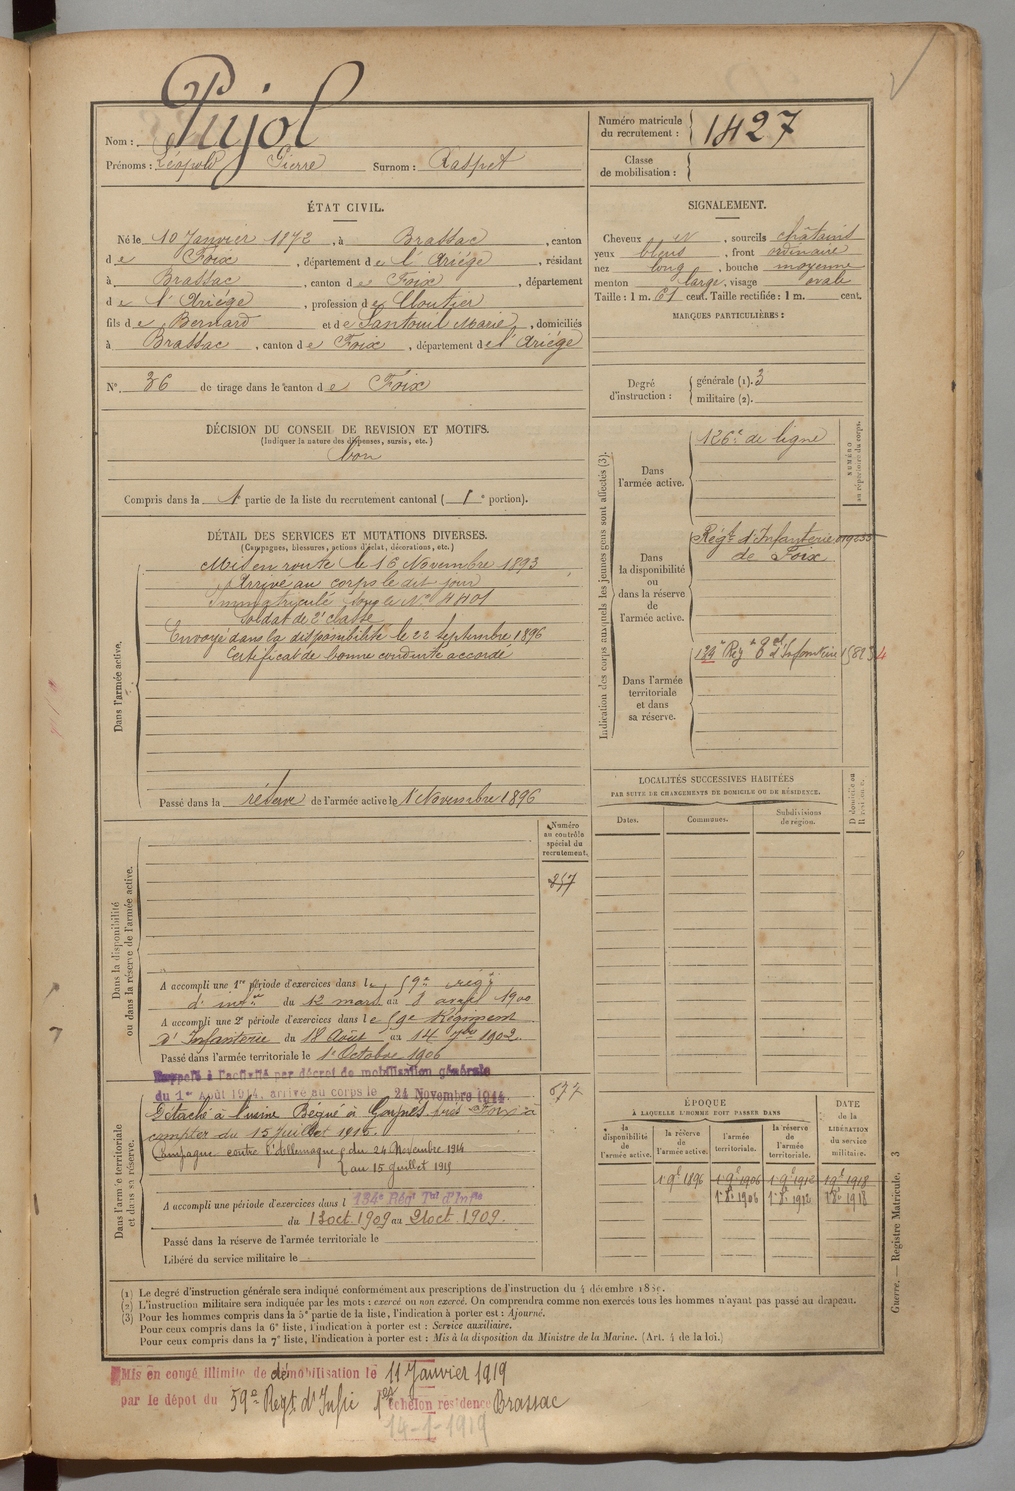 Nom : Pujol
Prénoms : Léopold Pierre Surnom : Raspet
Numéro matricule du recrutement : 1427
Classe de mobilisation :
ÉTAT CIVIL.
Né le 10 Janvier 1872, à Brassac, canton
de Foix, département de l'Ariège, résidant
à Brassac, canton de Foix, département
de l'Ariège, profession de Cloutier
fils de Bernard et de Santouil Marie, domiciliés
à Brassac, canton de Foix, département de l'Ariège
N° 36 de tirage dans le canton de Foix
SIGNALEMENT.
Cheveux N, sourcils châtains
yeux bleus, front ordinaire
nez long, bouche moyenne
menton large, visage ovale
Taille : 1 m. 61 cent. Taille rectifiée : 1 m. cent.
MARQUES PARTICULIÈRES :
Degré d'instruction :
générale (1). 3
militaire (2).
DÉCISION DU CONSEIL DE REVISION ET MOTIFS.
(Indiquer la nature des dispenses, sursis, etc.)
bon
Compris dans la 1 partie de la liste du recrutement cantonal ( 1 e portion).
DÉTAIL DES SERVICES ET MUTATIONS DIVERSES.
(Campagnes, blessures, actions d'éclat, décorations, etc.)
Dans l'armée active.
Mis en route le 16 Novembre 1893
Arrivé au corps le dit jour
Immatriculé sous le N° 4401
Soldat de 2e classe
Envoyé dans la disponibilité le 22 Septembre 1896
Certificat de bonne conduite accordé
Passé dans la réserve de l'armée active le 1 Novembre 1896
Indication des corps auxquels les jeunes gens sont affectés (3).
NUMÉRO au répertoire du corps.
Dans l'armée active.
126e de ligne
Dans la disponibilité ou dans la réserve de l'armée active.
Régt d'Infanterie
de Foix
Dans l'armée territoriale et dans sa réserve.
134e Régt Tal d'Infanterie
LOCALITÉS SUCCESSIVES HABITÉES
PAR SUITE DE CHANGEMENTS DE DOMICILE OU DE RÉSIDENCE.
Dates. Communes. Subdivisions de région. D domicile ou R résidence.
Dans la disponibilité ou dans la réserve de l'armée active.
Numéro au contrôle spécial du recrutement.
257
A accompli une 1re période d'exercices dans le 59e régt
d'infie du 12 mars au 8 avril 1900
A accompli une 2e période d'exercices dans le 59e Régiment
d'Infanterie du 18 Août au 14 7bre 1902
Passé dans l'armée territoriale le 1er Octobre 1906
Dans l'armée territoriale et dans sa réserve.
Rappelé à l'activité par décret de mobilisation générale
du 1er Août 1914, arrivé au corps le 24 Novembre 1914.
677
Détaché à l'usine Bégué à Garnès près Foix à
compter du 15 Juillet 1915.
Campagne contre l'Allemagne du 24 Novembre 1914
au 15 juillet 1915
A accompli une période d'exercices dans l 134e Régt Tal d'Infie
du 13 oct 1909 au 21 oct 1909.
Passé dans la réserve de l'armée territoriale le
Libéré du service militaire le
ÉPOQUE
À LAQUELLE L'HOMME DOIT PASSER DANS
DATE de la LIBÉRATION du service militaire.
la disponibilité de l'armée active. la réserve de l'armée active. l'armée territoriale. la réserve de l'armée territoriale.
1 9e 1896 1 9e 1906 1 9e 1912 1 9e 1918
1er 8e 1906 1er 8e 1912 1er 8e 1918
(1) Le degré d'instruction générale sera indiqué conformément aux prescriptions de l'instruction du 4 décembre 1889.
(2) L'instruction militaire sera indiquée par les mots : exercé ou non exercé. On comprendra comme non exercés tous les hommes n'ayant pas passé au drapeau.
(3) Pour les hommes compris dans la 5e partie de la liste, l'indication à porter est : Ajourné.
Pour ceux compris dans la 6e liste, l'indication à porter est : Service auxiliaire.
Pour ceux compris dans la 7e liste, l'indication à porter est : Mis à la disposition du Ministre de la Marine. (Art. 4 de la loi.)
Guerre. — Registre Matricule. 3
Mis en congé illimité de démobilisation le 11 Janvier 1919
par le dépôt du 59e Régt d'Infie 1er échelon résidence Brassac
14-1-1919